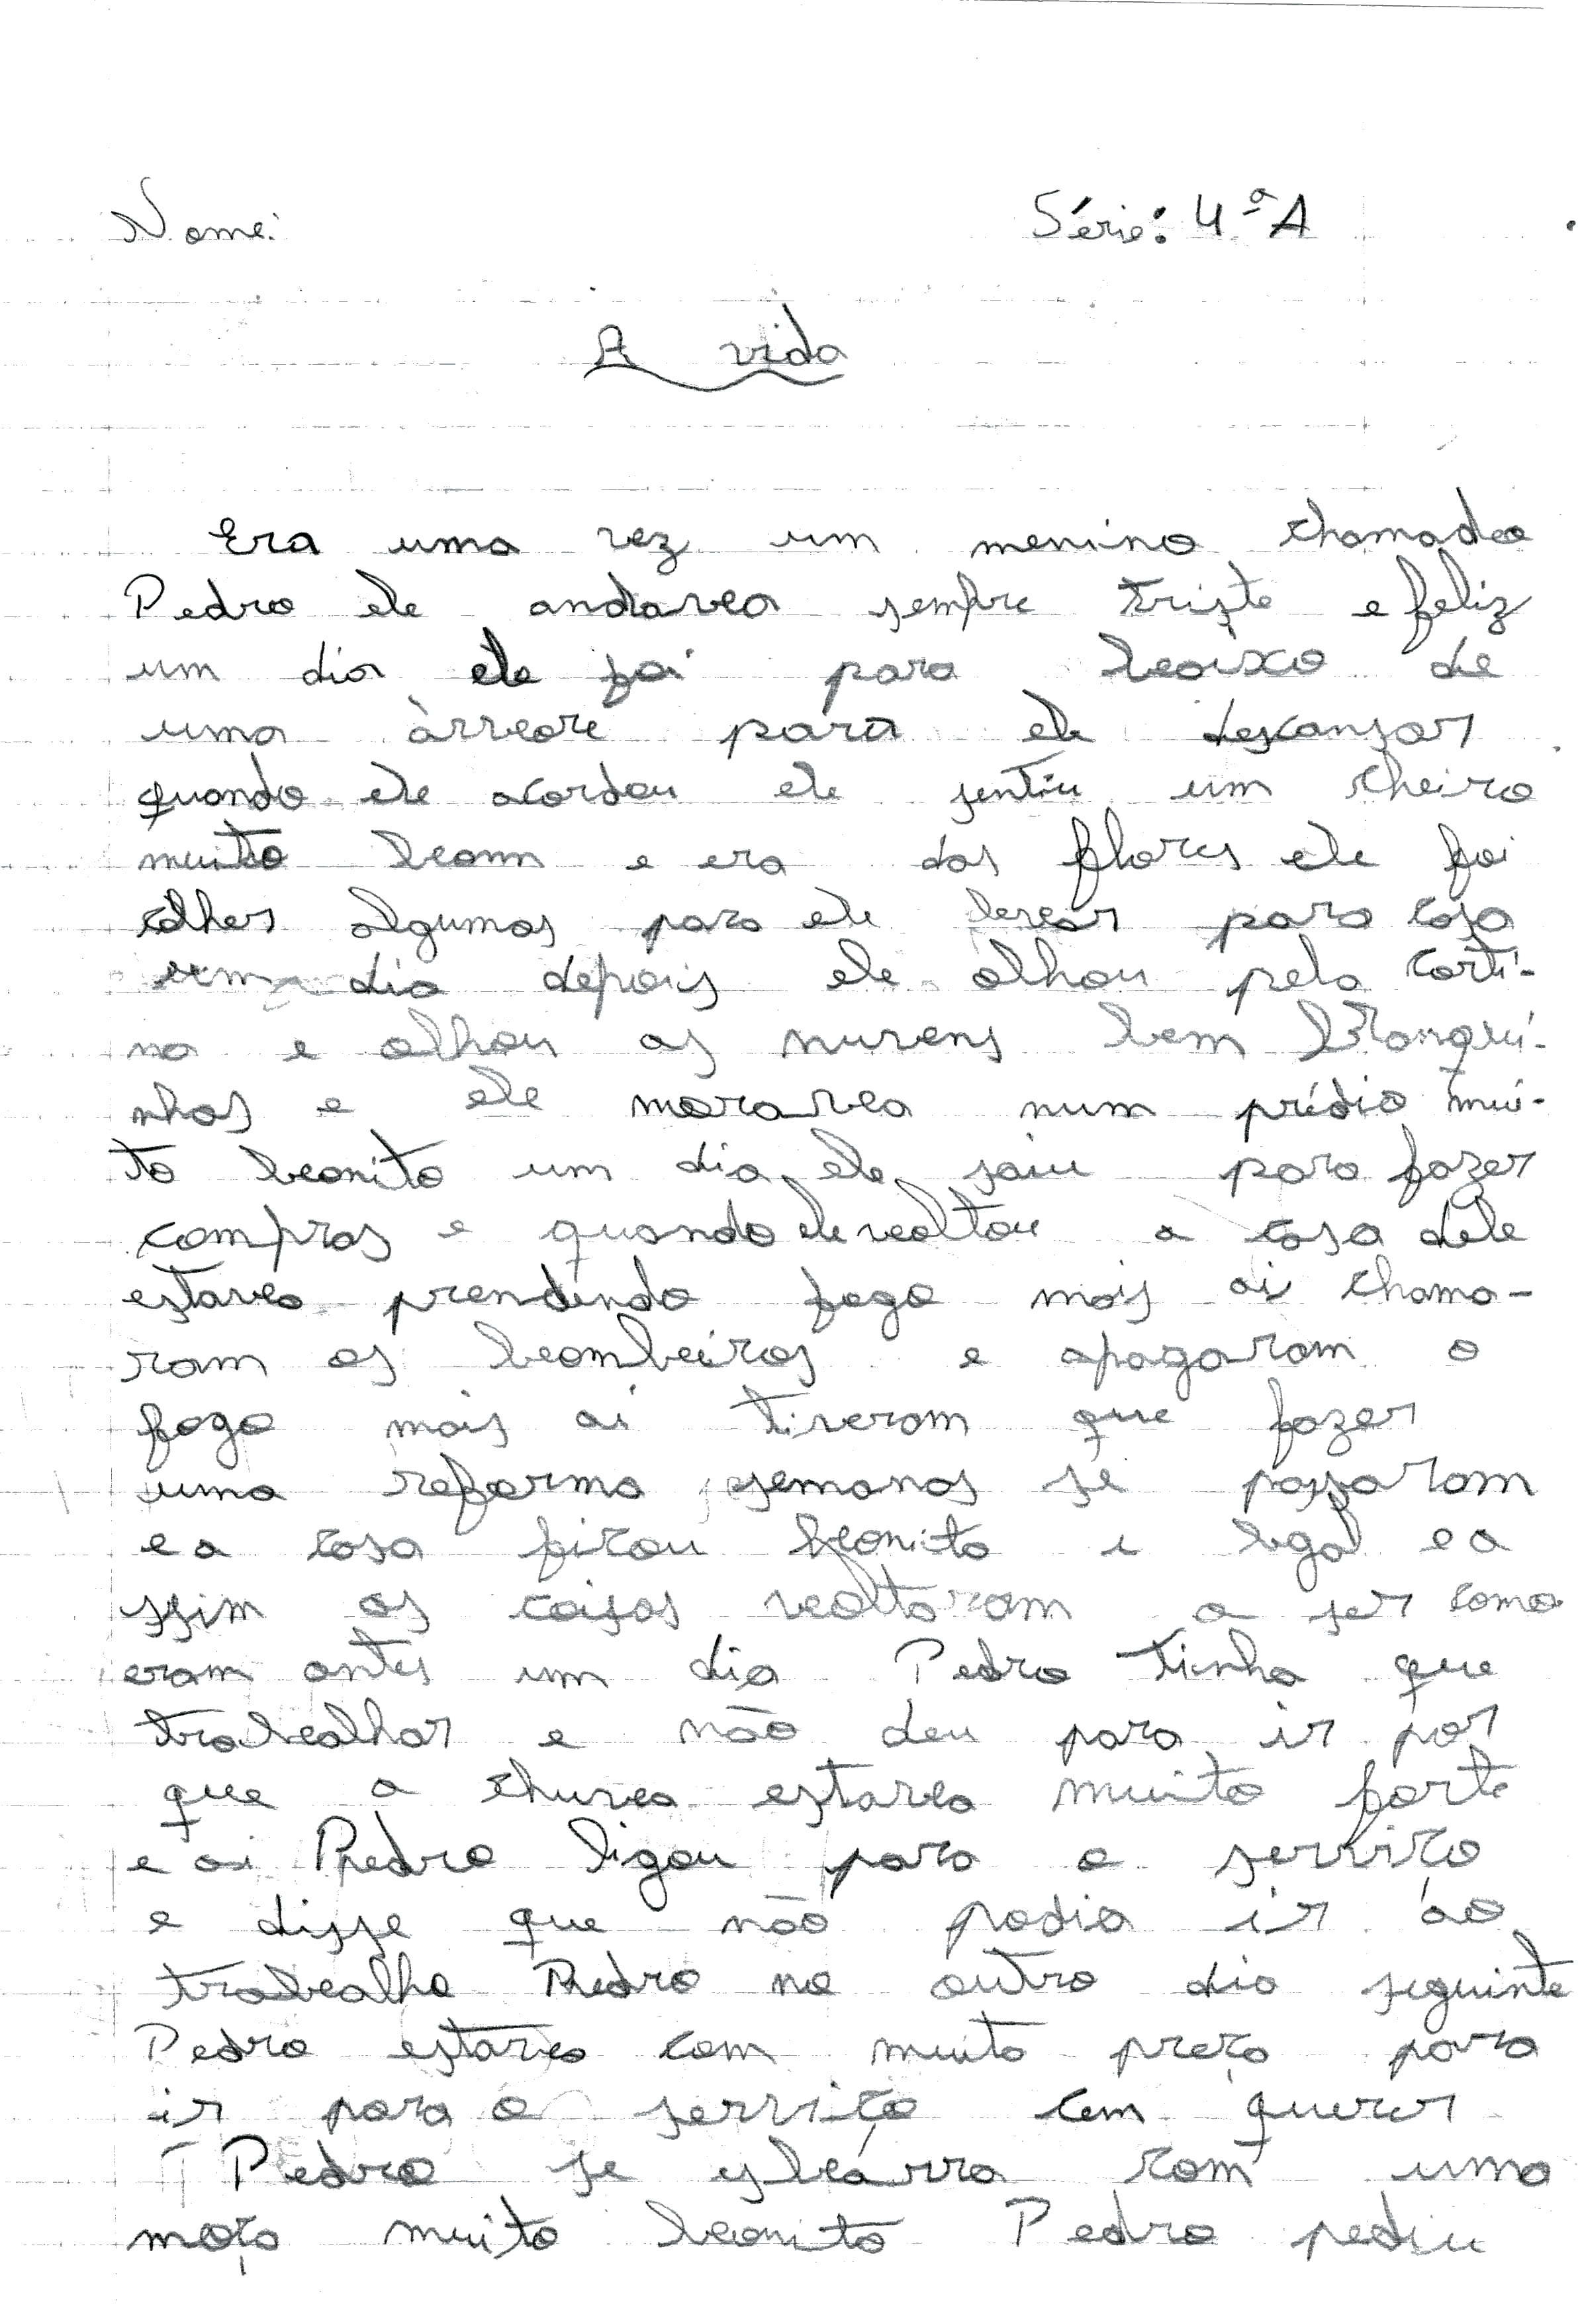 Nome: Série: 4ª A
A vida
Era uma vez um menino chamado
Pedro ele andava sempre triste e feliz
um dia ele foi para baixo de
uma àrvore para ele descansar
quando ele acordou ele sentiu um cheiro
muito bom e era das flhores ele foi
colher algumas para ele levar para casa
um dia depois ele olhou pela corti-
na e olhou as nuvens bem branqui-
nhas e ele morava num prédio mui-
to bonito um dia ele saiu para fazer
compras e quando ele voltou a casa dele
estava prendendo fogo mais ai chama-
ram os bombeiros e apagaram o
fogo mais ai tiveram que fazer
uma reforma semanas se passaram
e a casa ficou bonita e legal e a
ssim as coisas voltaram a ser como
eram antes um dia Pedro tinha que
trabalhar e não deu para ir por
que a chuva estava muito forte
e ai Pedro ligou para o serviço
e disse que não podia ir ao
trabalho Pedro no outro dia seguinte
Pedro estava com muita preça para
ir para o serviço cem querer
Pedro se esbárra com uma
moça muito bonita Pedro pediu